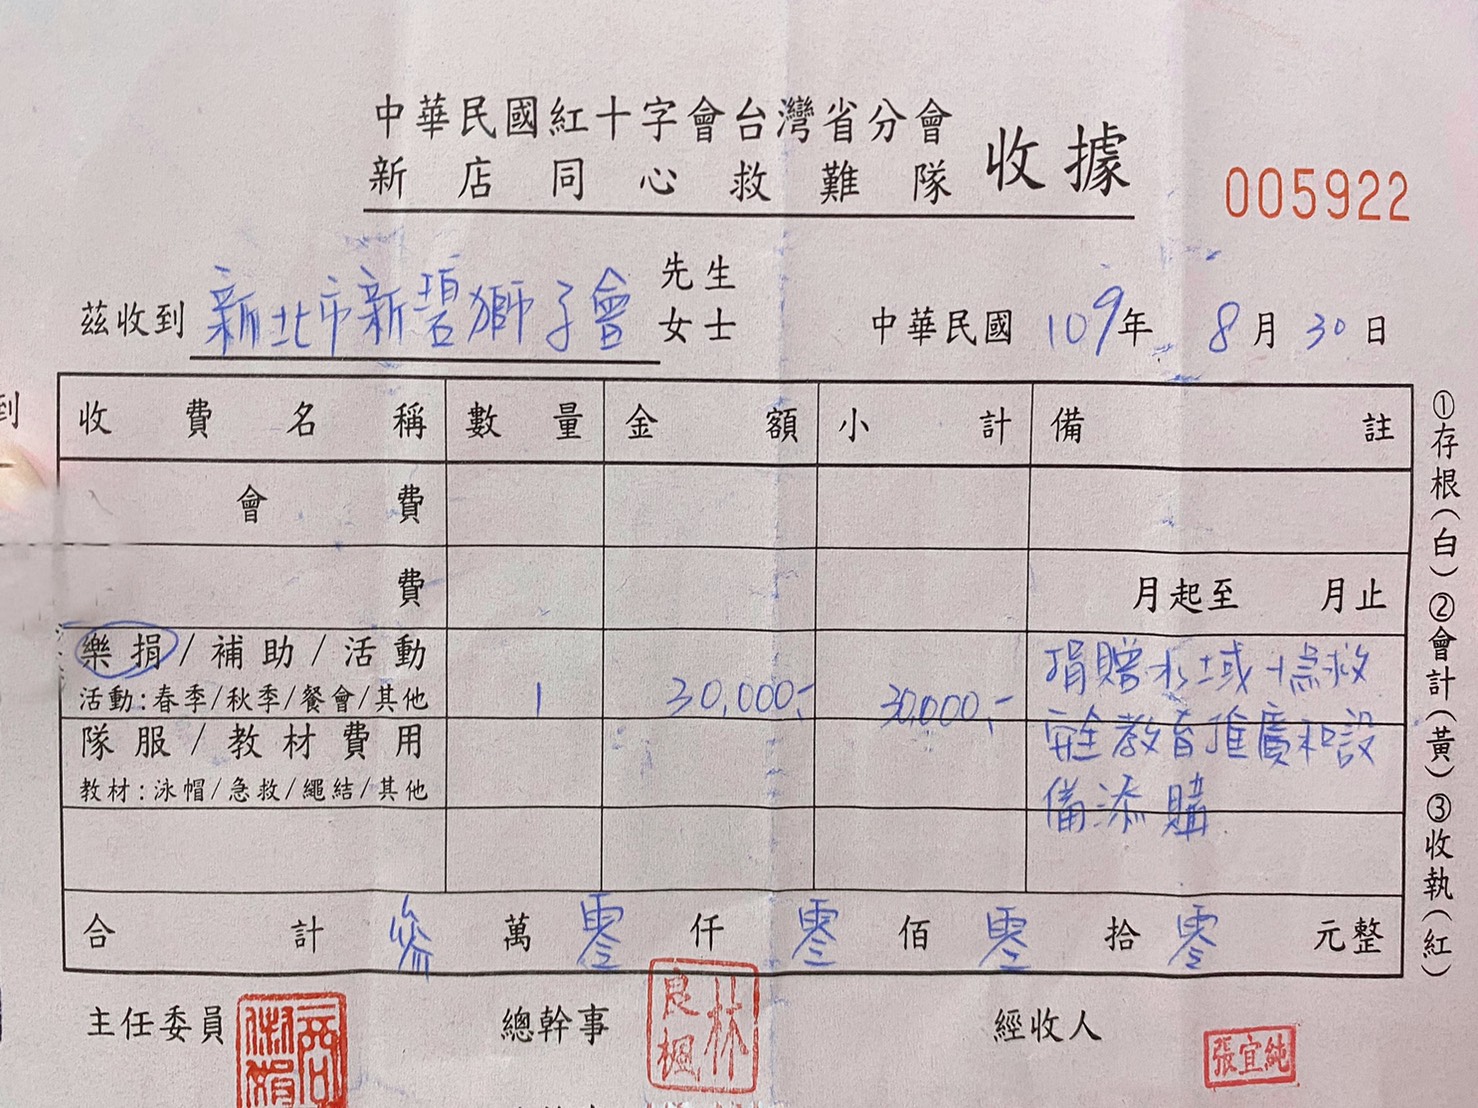 中華民國紅十字會台灣省分會
新店同心救難隊 收據
005922
茲收到 新北市新碧獅子會 先生 女士 中華民國 109年 8月 30日
到
收費名稱 數量 金額 小計 備註
會費
費 月起至 月止
樂捐/補助/活動
活動:春季/秋季/餐會/其他 1 30,000.- 30,000.- 捐贈水域、急救
隊服/教材費用 安全教育推廣和設
教材:泳帽/急救/繩結/其他 備添購
合計 參萬零仟零佰零拾零元整
①存根(白)②會計(黃)③收執(紅)
主任委員 總幹事 林良楓 經收人 張宜純